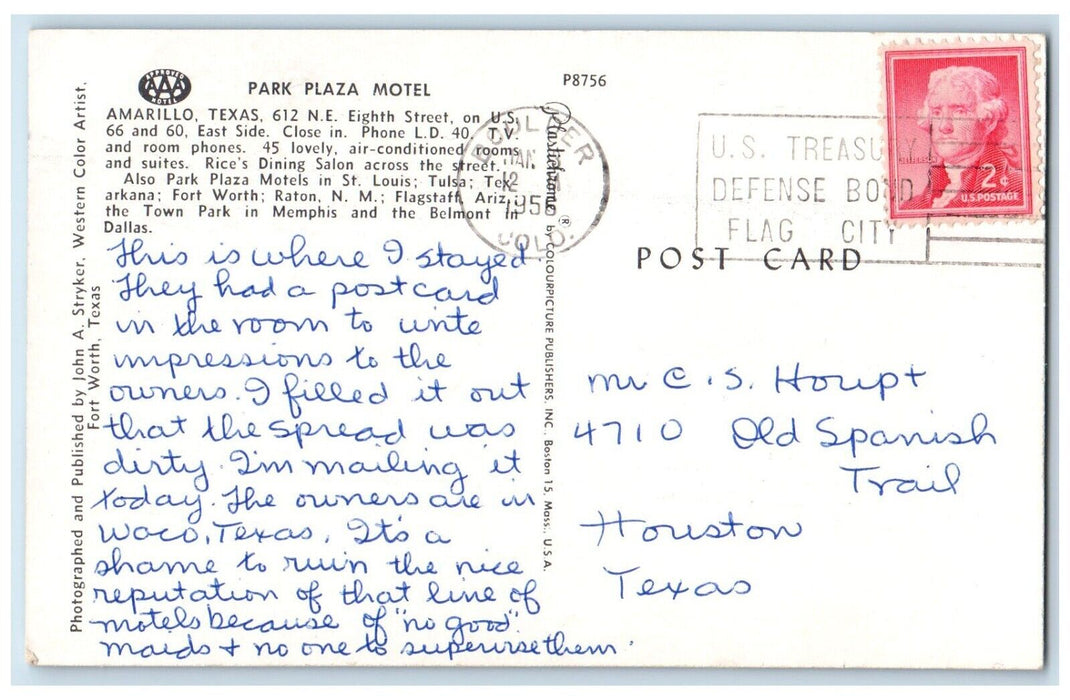 APPROVED
AAA
MOTEL
PARK PLAZA MOTEL
AMARILLO, TEXAS, 612 N.E. Eighth Street, on U.S.
66 and 60, East Side. Close in. Phone L.D. 40. T.V.
and room phones. 45 lovely, air-conditioned rooms
and suites. Rice's Dining Salon across the street.
Also Park Plaza Motels in St. Louis; Tulsa; Tex-
arkana; Fort Worth; Raton, N. M.; Flagstaff, Ariz.;
the Town Park in Memphis and the Belmont in
Dallas.
This is where I stayed
They had a postcard
in the room to write
impressions to the
owners. I filled it out
that the spread was
dirty. I'm mailing it
today. The owners are in
Waco, Texas. It's a
shame to ruin the nice
reputation of that line of
motels because of "no good"
maids + no one to supervise them.
Photographed and Published by John A. Stryker, Western Color Artist,
Fort Worth, Texas
P8756
Plastichrome ® by COLOURPICTURE PUBLISHERS, INC. Boston 15, Mass., U.S.A.
BOULDER
JAN
12
1956
COLO.
U.S. TREASURY
DEFENSE BOND
FLAG CITY
JEFFERSON
2¢
U.S. POSTAGE
POST CARD
Mr C. S. Houpt
4710 Old Spanish
Trail
Houston
Texas